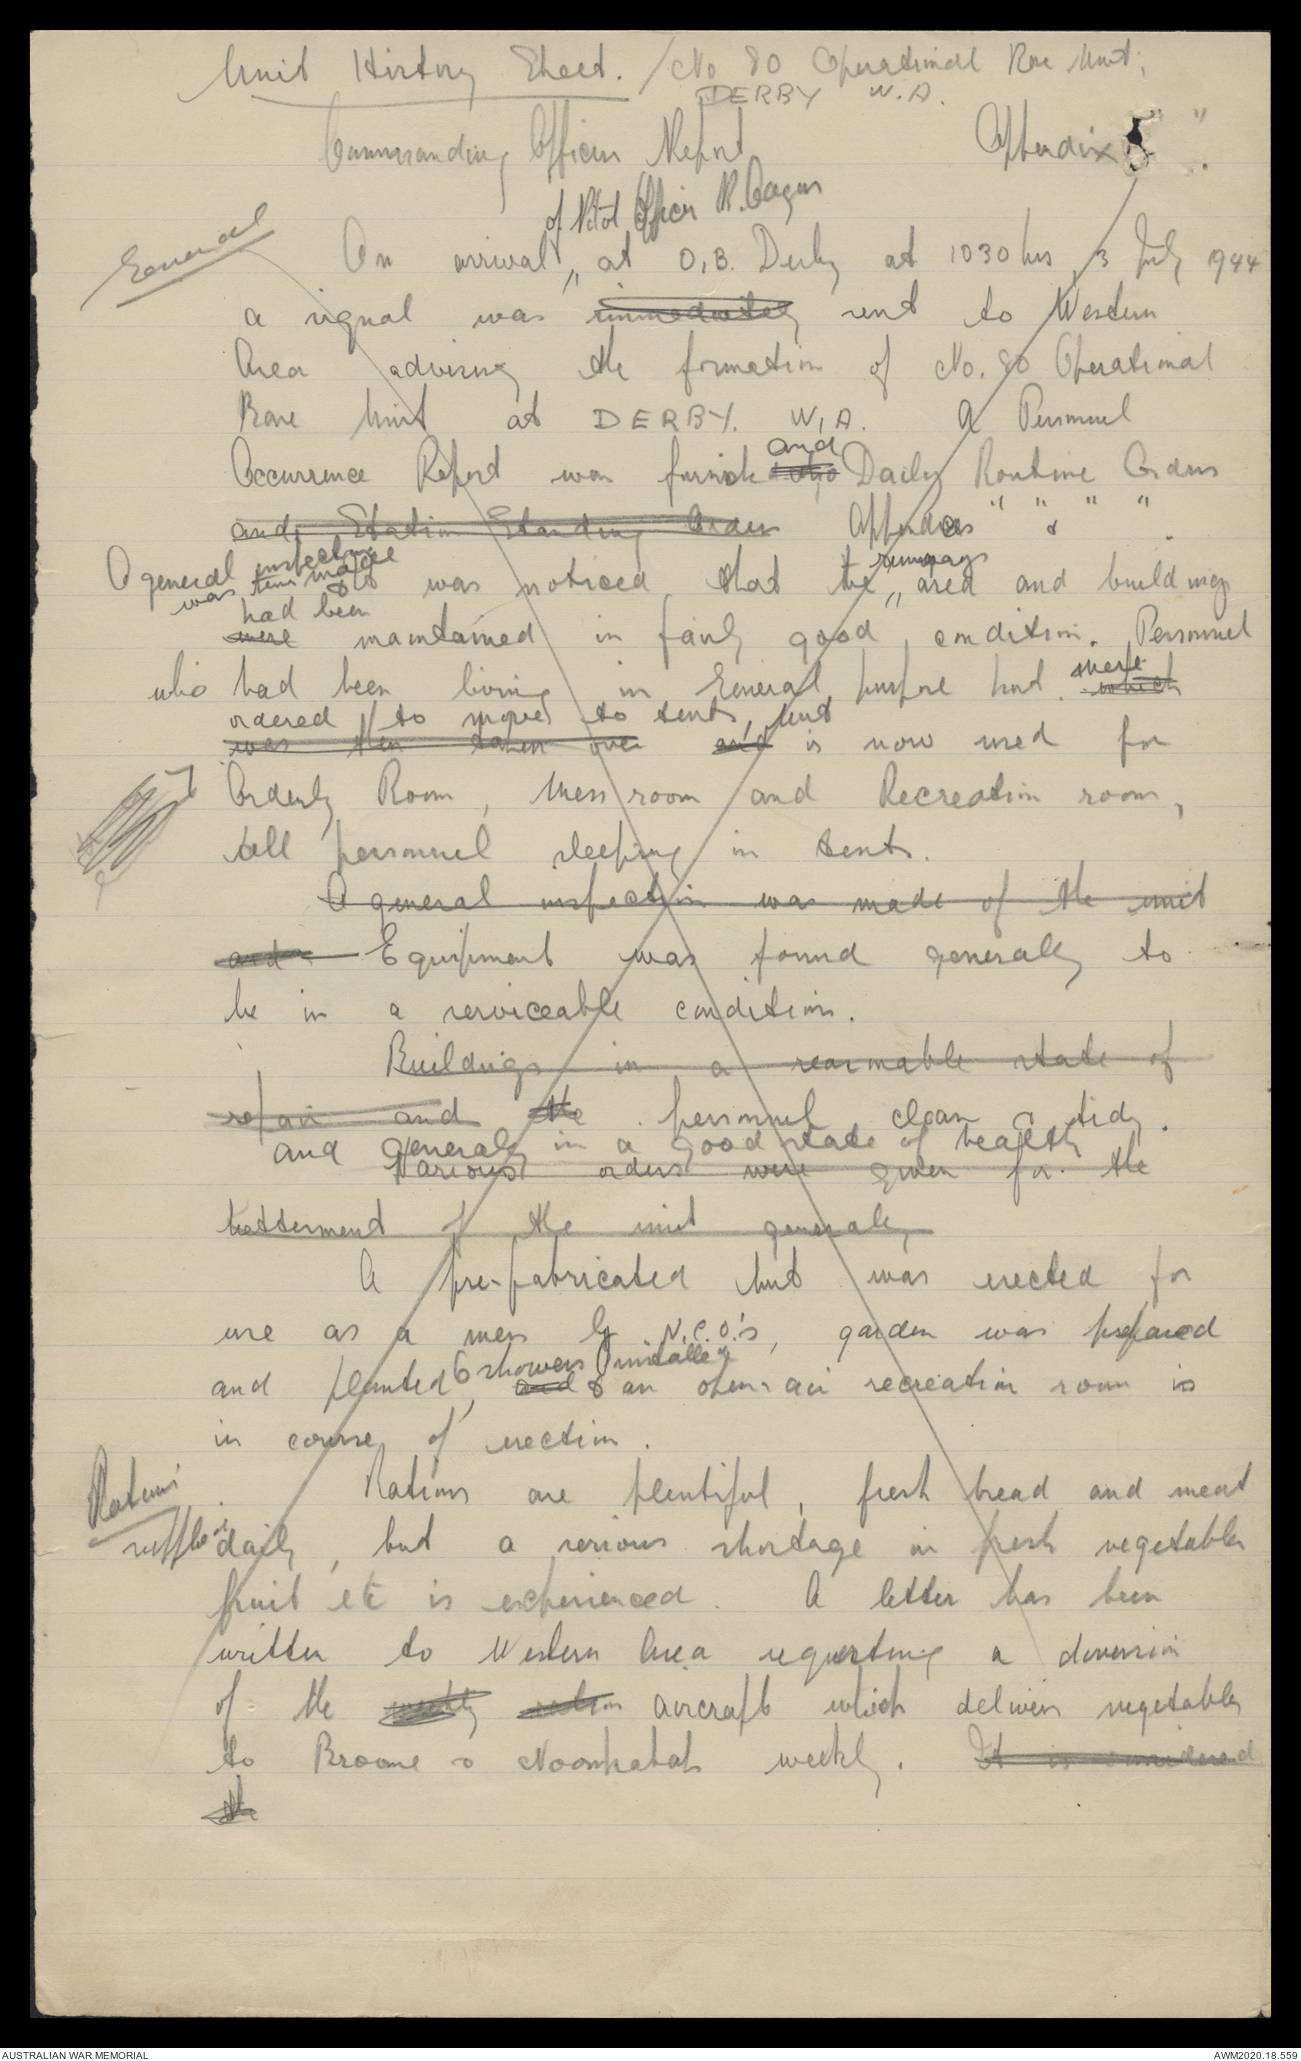 Unit History Sheet. / No 80 Operational Base Unit,
DERBY W.A.
Commanding Officers Report Appendix " ".
of Pilot Officer R.
General
On arrival, at O.B. Derby at 1030 hrs, 3 July 1944
a signal was immediately sent to Western
Area advising the formation of No. 80 Operational
Base Unit at DERBY. W.A. A Personnel
and
Occurrence Report was furnish also Daily Routine Orders
and Station Standing Orders Appendices " " & " ".
A general inspection
was then made & it was noticed that the runways area and buildings
had been
were maintained in fairly good condition. Personnel
who had been living in General purpose hut were which
ordered to move to tents, hut
was then taken over and is now used for
Orderly Room, Mess room and Recreation room,
all personnel sleeping in tents.
A general inspection was made of the unit
and Equipment was found generally to
be in a serviceable condition.
Buildings in a reasonable state of
repair and the personnel clean & tidy.
and generally in a good state of health
Various orders were given for the
betterment of the unit generally
A pre-fabricated hut was erected for
use as a mess by N.C.O.'s, garden was prepared
6 showers installed
and planted, and & an open-air recreation room is
in course of erection.
Rations
Rations are plentiful, fresh bread and meat
supplied daily, but a serious shortage in fresh vegetables
fruit etc is experienced. A letter has been
written to Western Area requesting a diversion
of the weekly ration aircraft which delivers vegetables
to Broome & Noonkabah weekly. It is considered
the
AUSTRALIAN WAR MEMORIAL
AWM2020.18.559